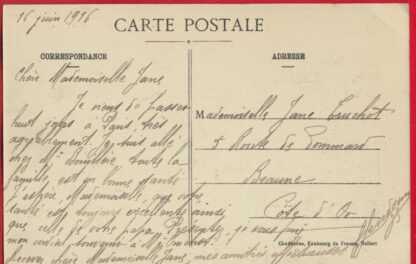 16 juin 1916
CARTE POSTALE
CORRESPONDANCE
ADRESSE
Chère Mademoiselle Jane
Je viens de passer
huit jours à Paris, très
agréablement. Je suis allé
chez Mr toute la
famille, est en bonne santé
J'espère, Mademoiselle, que votre
santé est toujours excellente ainsi
que celle de votre papa. Présentez, je vous prie
mon cordial souvenir à Mr Truchot.
Recevez chère Mademoiselle Jane, mes amitiés affectueuses
Mademoiselle Jane Truchot
5 Route de Pommard
Beaune
Côte d'Or
Faubourg de France, Belfort